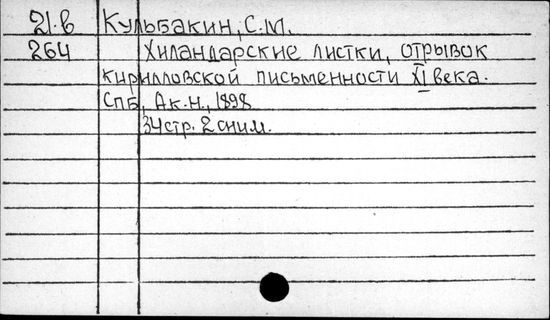 21.в Кульбакин, С.М.
264 Хиландарские листки, отрывок
кирилловской письменности XI века.
СПБ, Ак.н., 1898
34стр. 2 сним.